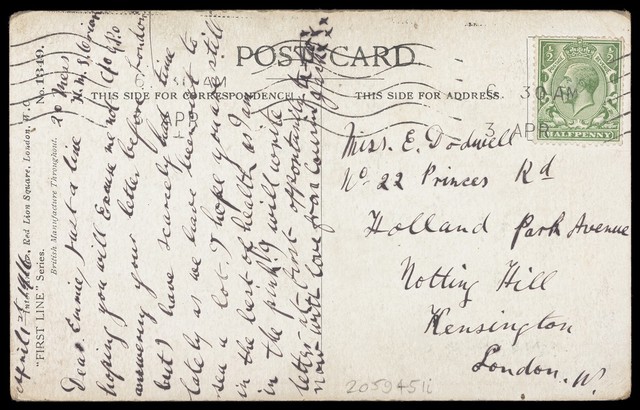 POST CARD
THIS SIDE FOR CORRESPONDENCE.
THIS SIDE FOR ADDRESS.
6 30 AM
3 APR
½ ½
HALFPENNY
AM
APR
Miss. E. Dodwell
No. 22 Princes Rd
Holland Park Avenue
Notting Hill
Kensington
London. W.
2059451i
Red Lion Square, London, W.C. No. 1349.
British Manufacture Throughout.
"FIRST LINE" Series.
April 2nd 1916
20 Mess
H.M.S. Orion
c/o G.P.O
London
Dear Ennie, Just a line
hoping you will Excuse me not
answering your letter before
but I have scarcely had time
lately as we have been out to
sea a lot. I hope you are still
in the best of health as I am
in the pink. I will write a
letter at first opportunity
now with love from Cousin
xxx